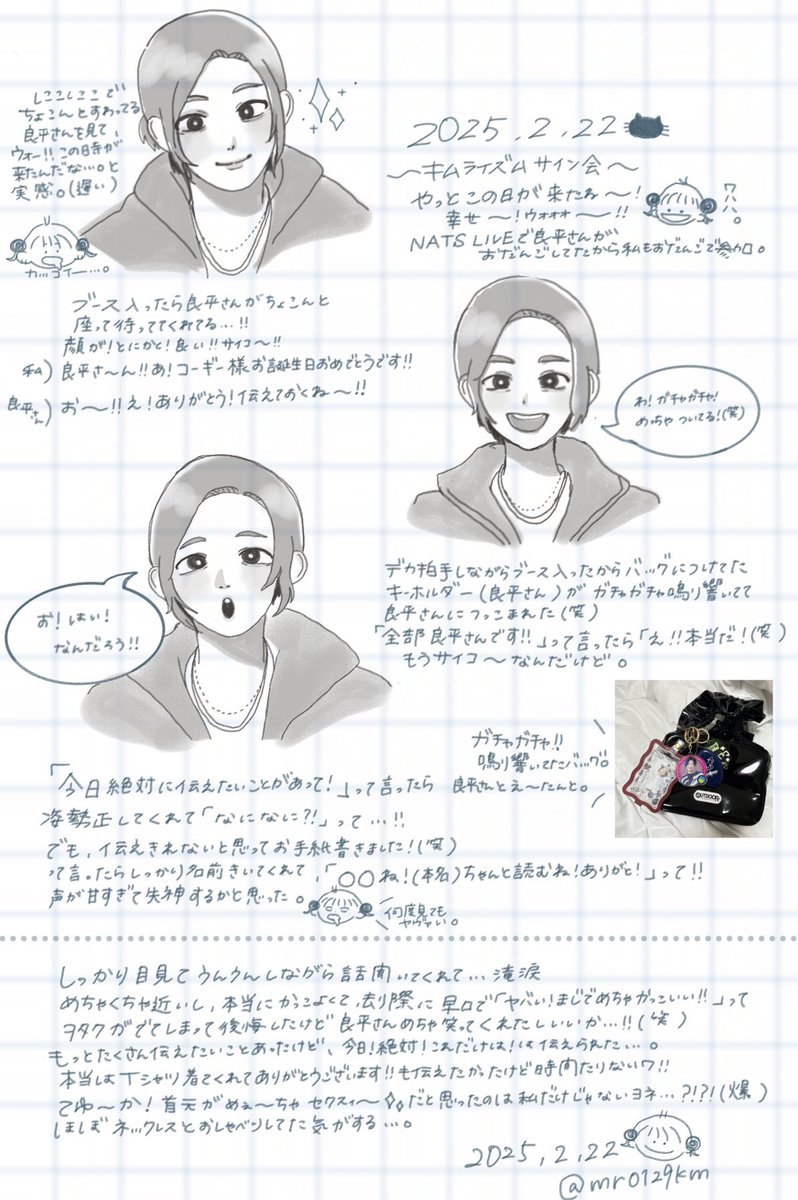 しここしここで
ちょこんとすわってる
良平さんを見て、
ウォー!!この日寺が
来たんだな…。と
実感。(遅い)
カッコイー…。
2025.2.22
〜キムライズム サイン会〜
やっとこの日が来たね〜!
幸せ〜!ウォォォ〜!!
ワハハ。
NATS LIVEで良平さんが
おだんごしてたから私もおだんごで参加。
ブース入ったら良平さんがちょこんと
座って待っててくれてる…!!
顔が!とにかく!良い!!サイコ〜!!
私)良平さ〜ん!!あ!コーギー様お誕生日おめでとうです!!
良平さん)お〜!!え!ありがとう!伝えておくね〜!!
わ!ガチャガチャ!
めっちゃついてる!(笑)
デカ拍手しながらブース入ったからバッグにつけてた
キーホルダー(良平さん)がガチャガチャ鳴り響いてて
良平さんにつっこまれた(笑)
「全部良平さんです!!」って言ったら「え!!本当だ!(笑)
もうサイコ〜なんだけど。
お!はい!
なんだろう!!
ガチャガチャ!!
鳴り響いたバッグ。
良平さんとえ〜たんと。
OUTDOOR
「今日絶対に伝えたいことがあって!」って言ったら
姿勢正してくれて「なになに?!」って…!!
でも、伝えきれないと思ってお手紙書きました!(笑)
って言ったらしっかり名前きいてくれて、「〇〇ね!(本名)ちゃんと読むね!ありがと!」って!!
声が甘すぎて失神するかと思った。
何度見ても
ヤヴァい。
しっかり目見てうんうんしながら話聞いてくれて…滝涙
めちゃくちゃ近いし、本当にかっこよくて、去り際に早口で「ヤバい!まじでめちゃかっこいい!!」って
ヲタクがでてしまって後悔したけど良平さんめちゃ笑ってくれたしいいか…!!(笑)
もっとたくさん伝えたいことあったけど、今日!絶対!これだけは!は伝えられた…。
本当はTシャツ着てくれてありがとうございます!!も伝えたかったけど時間たりないワ!!
てゆ〜か!首元がめぇ〜ちゃセクスィ〜だと思ったのは私だけじゃないヨネ…?!?!(爆)
ほぼほぼネックレスとおしゃべりしてた気がする…。
2025.2.22
@mr0129km